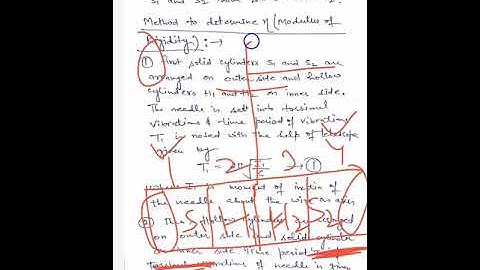 S1 and S2
Method to determine η (Modulus of
Rigidity) :→
① First solid cylinders S1 and S2 are
arranged on outer side and hollow
cylinders H1 and H2 on inner side.
The needle is set into torsional
vibrations & time period of vibration
T1 is noted with the help of telescope
given by
1 2 3 4
T1 = 2π √ I1/C → ①
where I1 is moment of inertia of
the needle about the wire as axis
S1 H1 H2 S2
② Then hollow cylinders are arranged
on outer side and solid cylinder
on inner side. Time period
torsional vibrations of needle is given